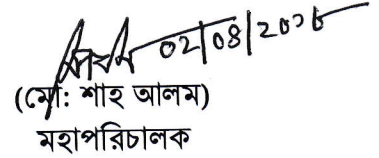 ০২/০৪/২০২৬
(মো: শাহ আলম)
মহাপরিচালক